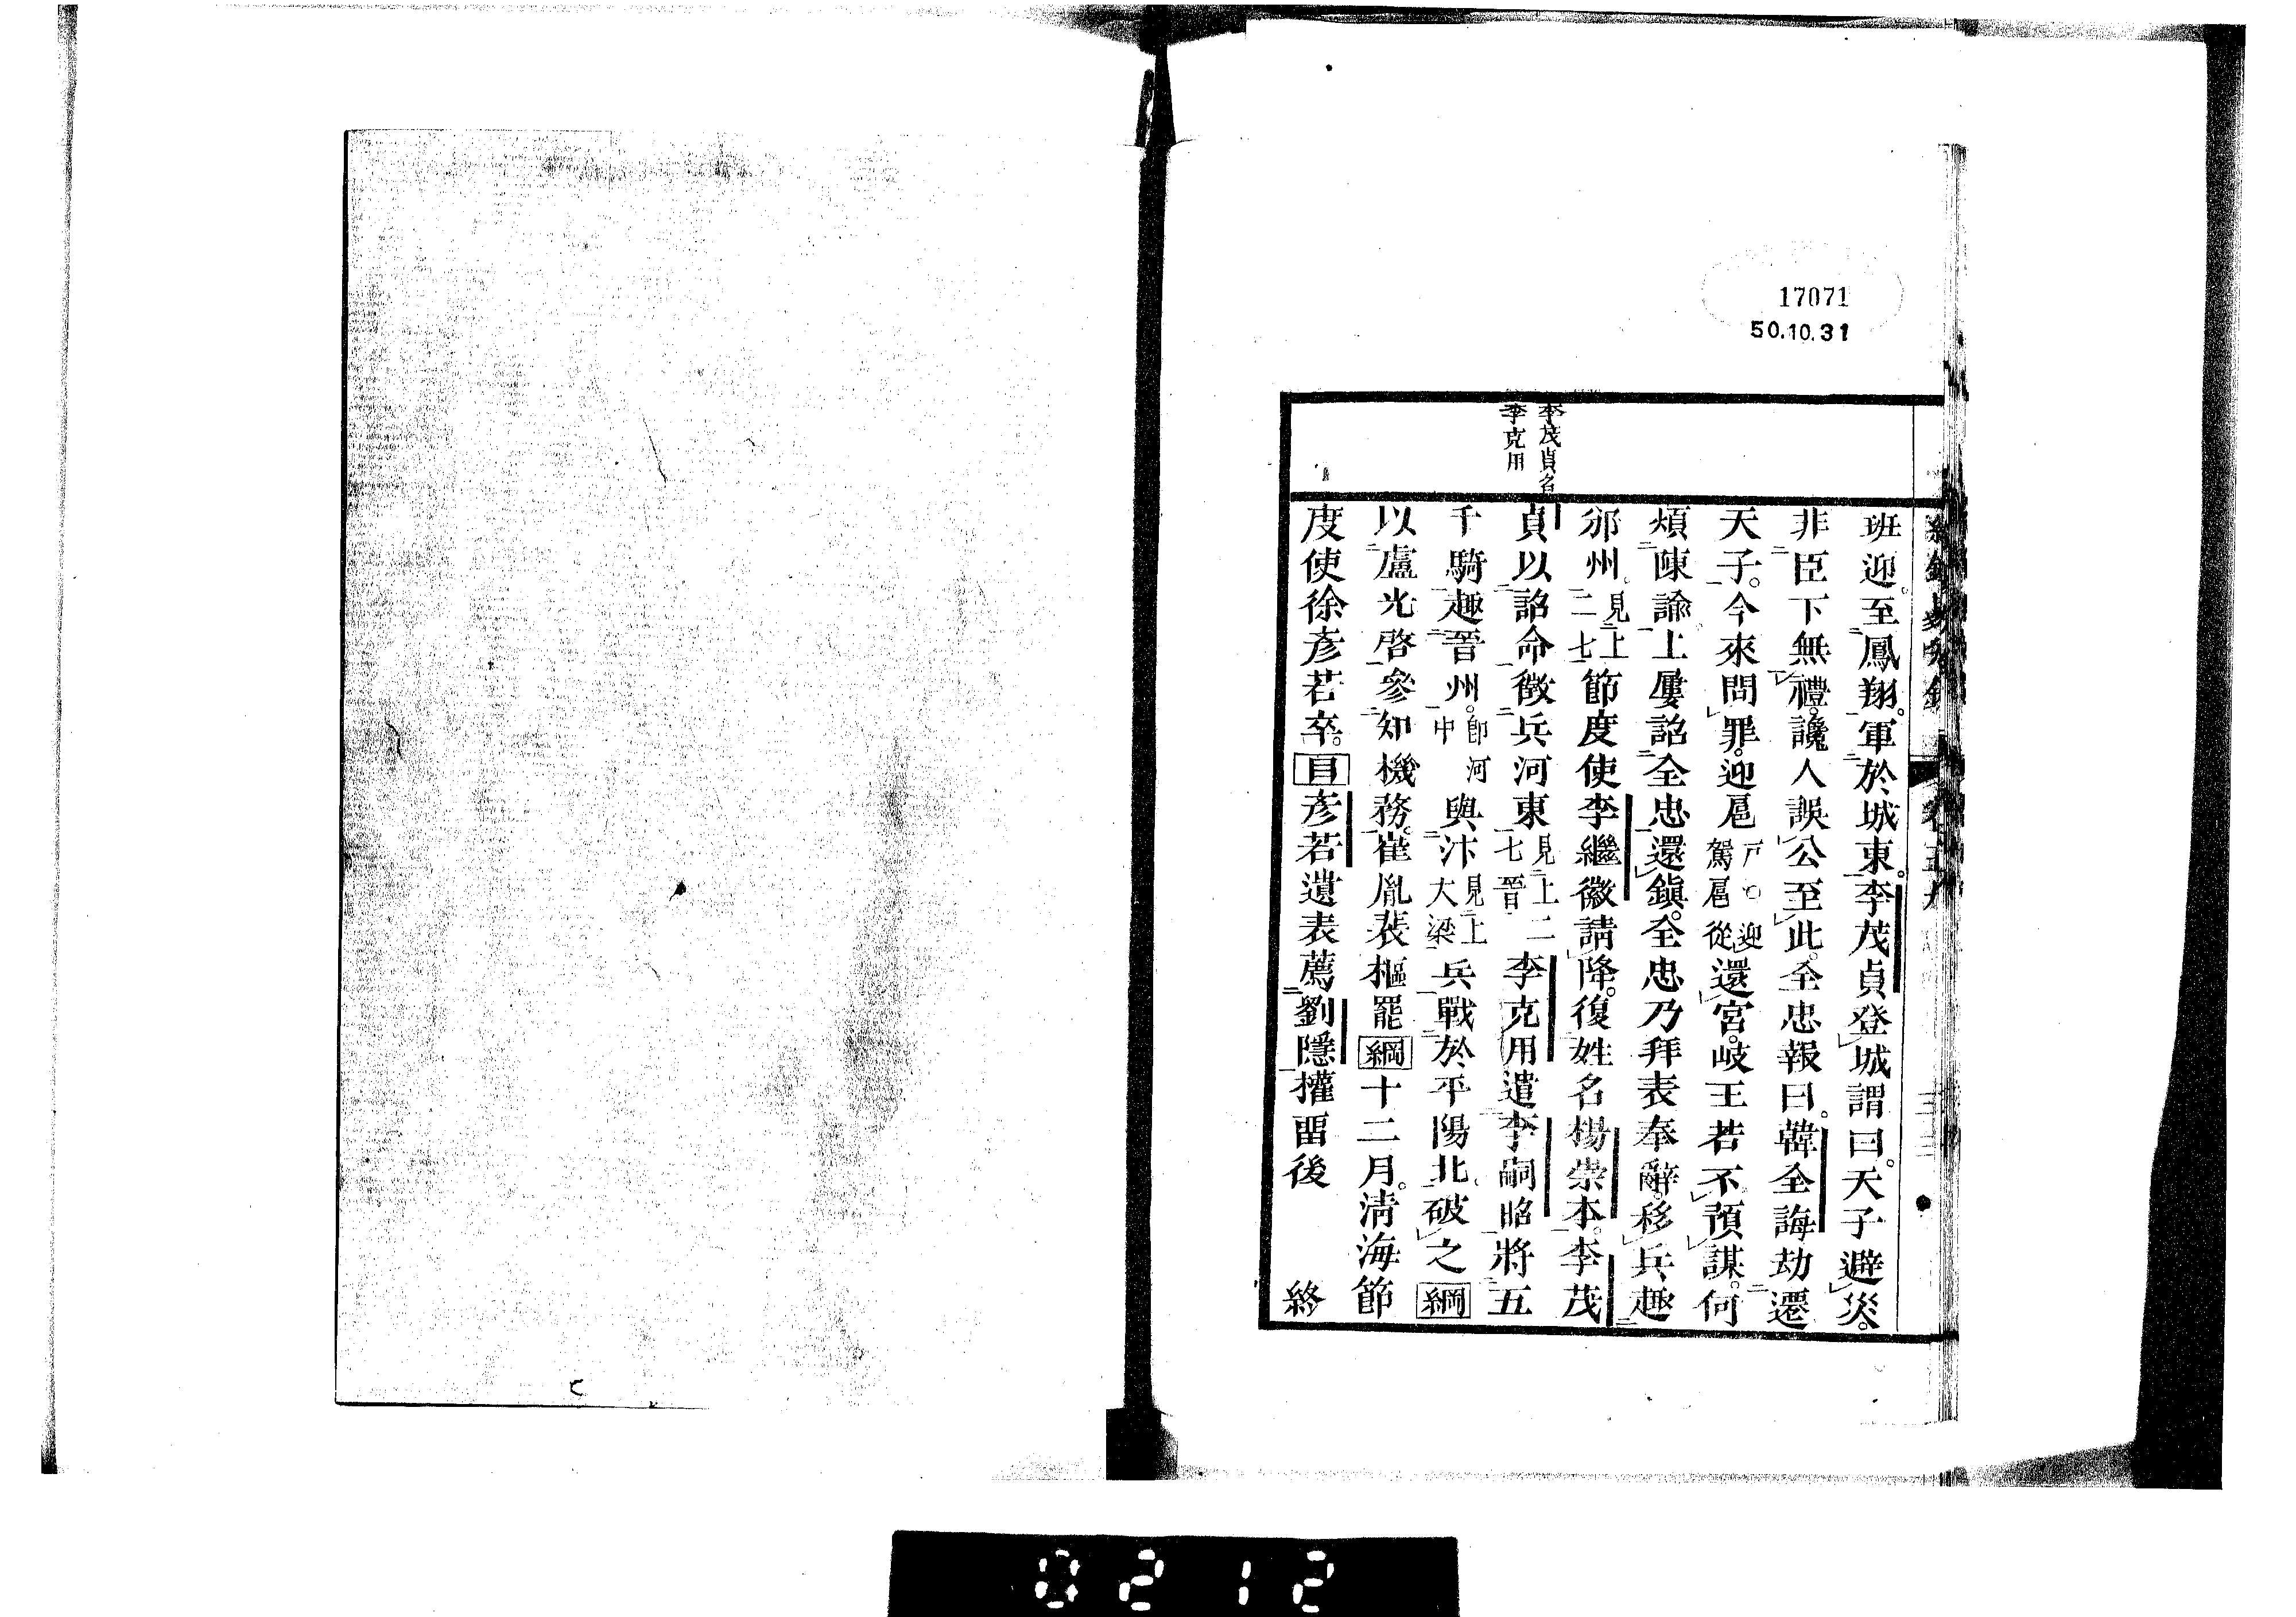 17071
50.10.31
李茂貞名
李克用
班迎。至鳳翔。軍於城東。李茂貞登城謂曰。天子避災。
非臣下無禮。讒人誤公至此。全忠報曰。韓全誨劫遷
天子。今來問罪。迎扈 戸○迎駕扈從 還宮。岐王若不預謀。何
煩陳諭。上屢詔全忠還鎭。全忠乃拜表奉辭。移兵趣
邠州。見上二七節度使李繼徽請降。復姓名楊崇本。李茂
貞以詔命徵兵河東 見上二七晉 李克用遣李嗣昭將五
千騎趣晉州。卽河中 與汴 見上大梁 兵戰於平陽北。破之 綱
以盧光啓參知機務。崔胤裴樞罷 綱 十二月。淸海節
度使徐彥若卒。目 彥若遺表薦劉隱權畱後 終
0212